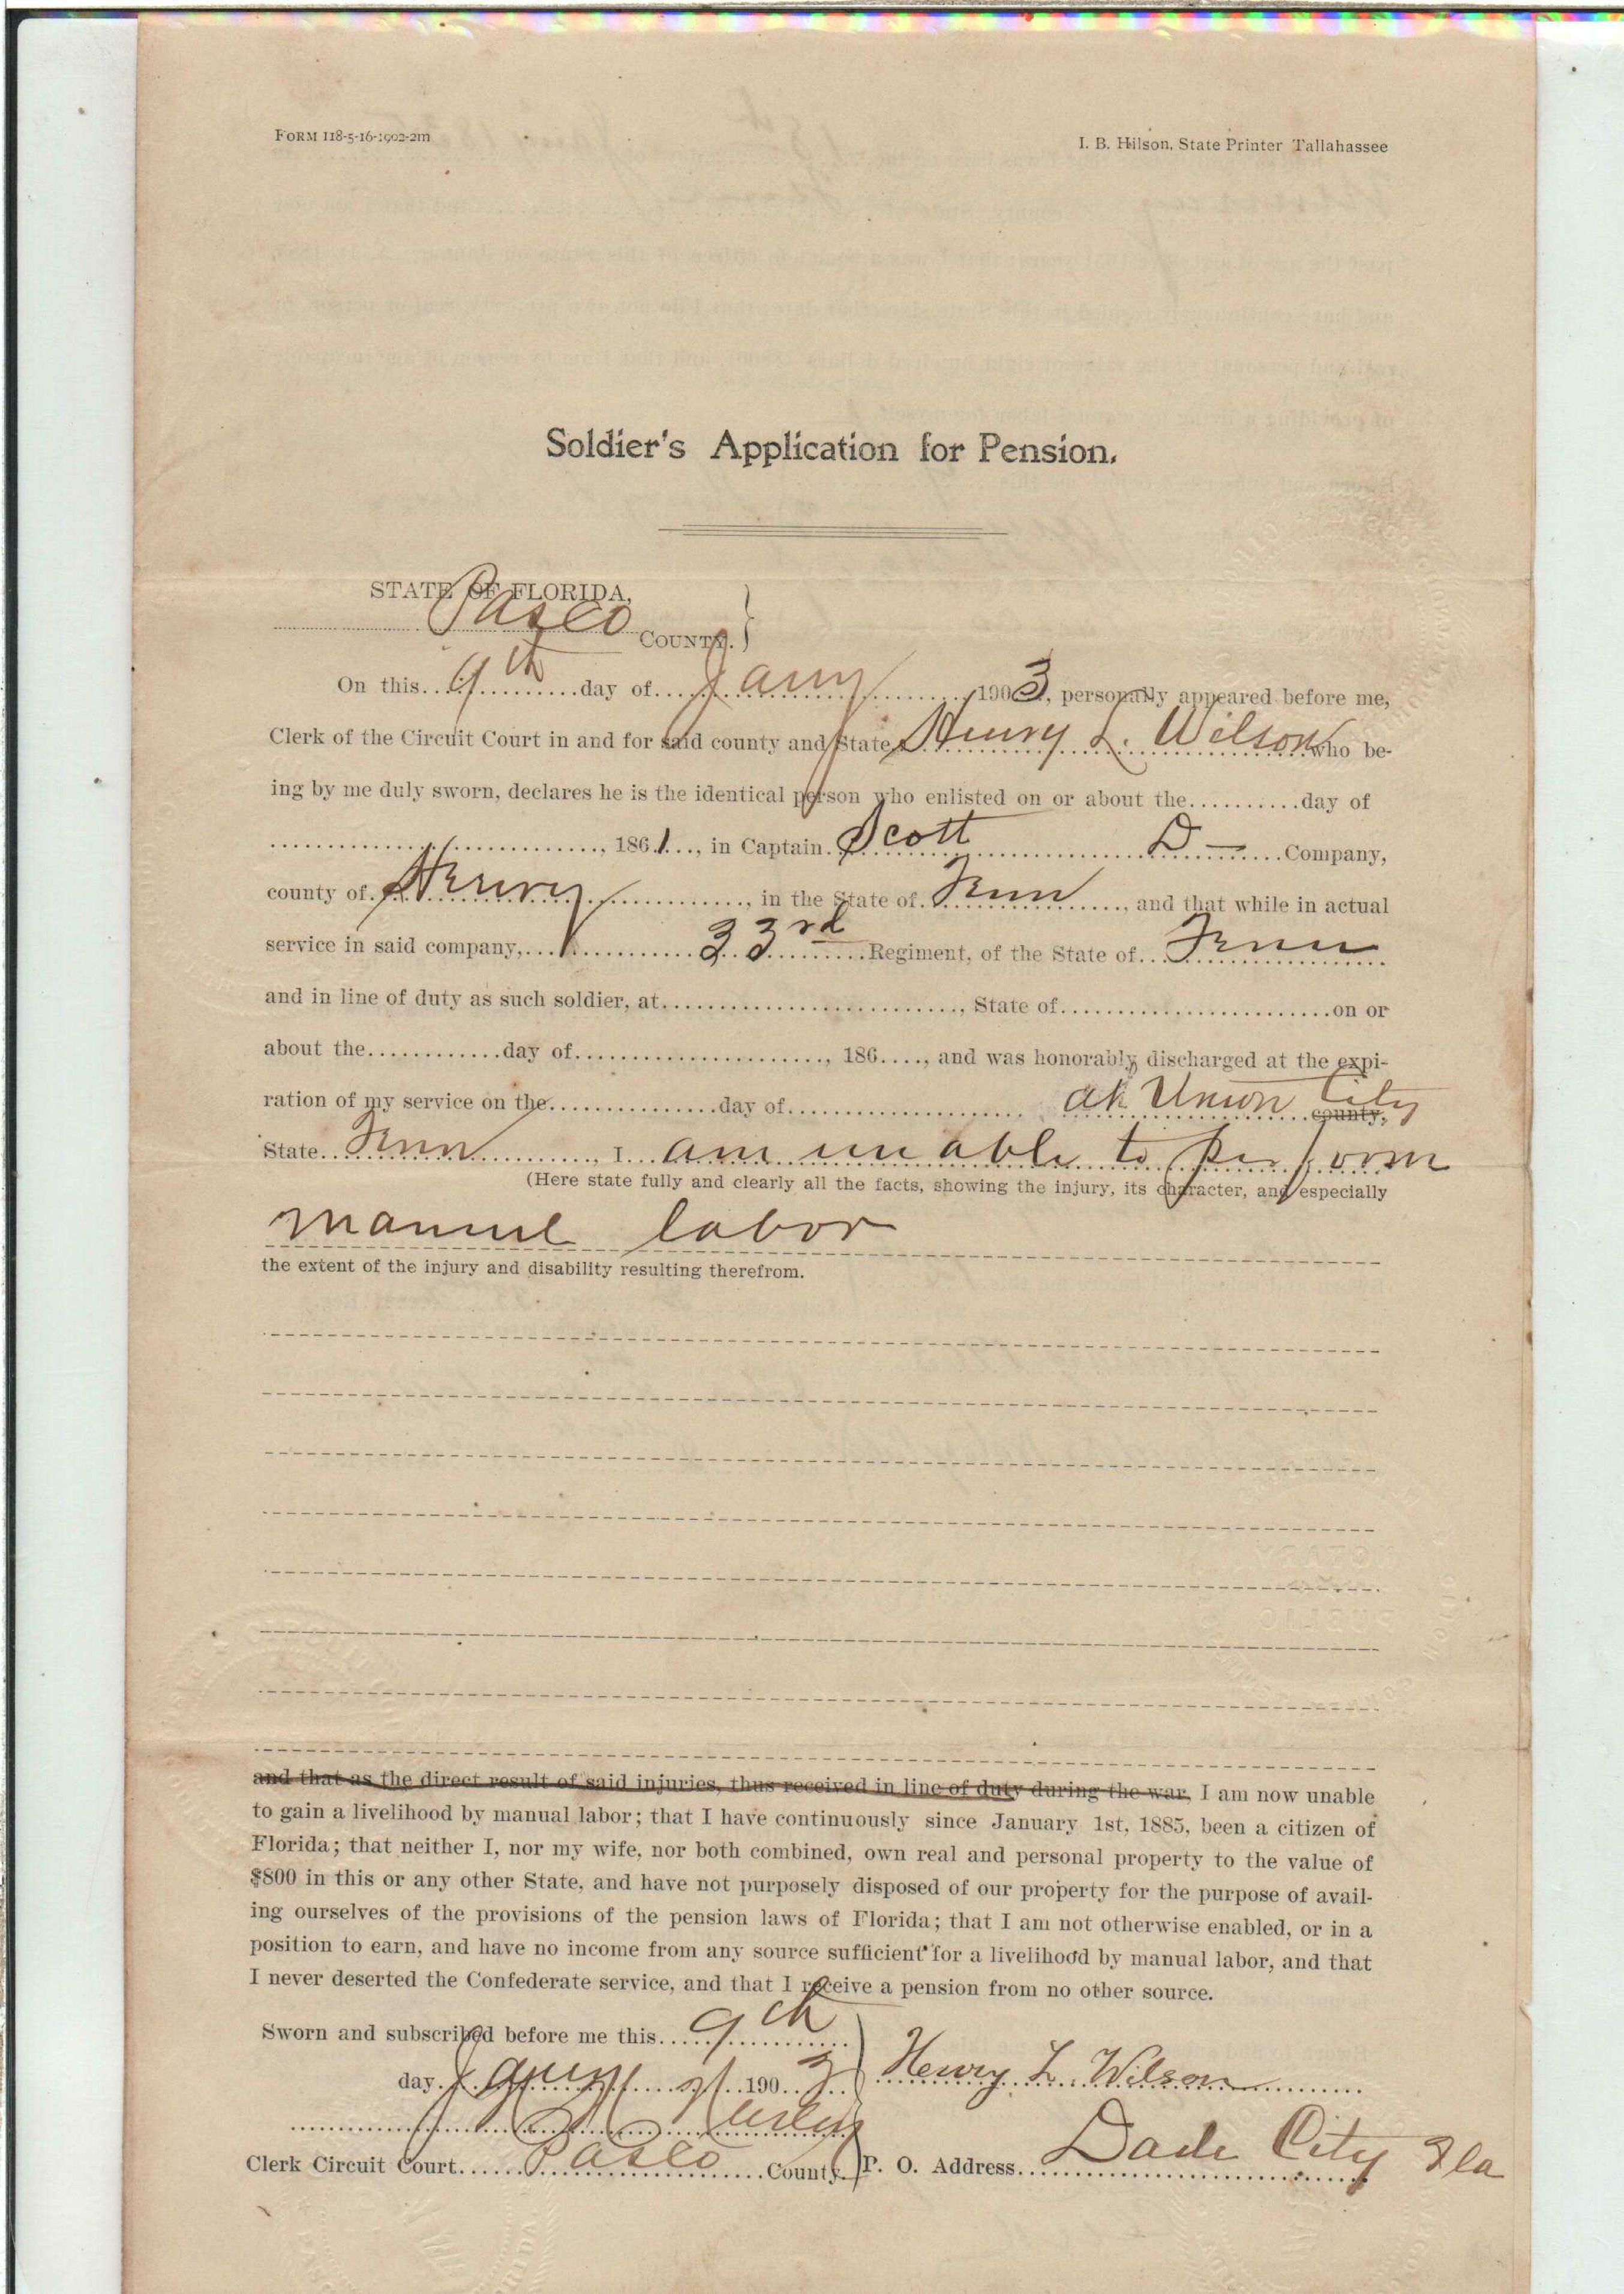 FORM 118-5-16-1902-2m
I. B. Hilson, State Printer Tallahassee
Soldier's Application for Pension.
STATE OF FLORIDA,
Pasco COUNTY.
On this 9th day of Jany 1903, personally appeared before me,
Clerk of the Circuit Court in and for said county and State Henry L. Wilson who be-
ing by me duly sworn, declares he is the identical person who enlisted on or about the..........day of
............................, 1861..., in Captain Scott D — Company,
county of Henry, in the State of Tenn, and that while in actual
service in said company, 33rd Regiment, of the State of Tenn
and in line of duty as such soldier, at.........................., State of........................on or
about the............day of......................, 186...., and was honorably discharged at the expi-
ration of my service on the...............day of..................... at Union City county,
State Tenn, I am unable to perform
(Here state fully and clearly all the facts, showing the injury, its character, and especially
manuel labor
the extent of the injury and disability resulting therefrom.
and that as the direct result of said injuries, thus received in line of duty during the war, I am now unable
to gain a livelihood by manual labor; that I have continuously since January 1st, 1885, been a citizen of
Florida; that neither I, nor my wife, nor both combined, own real and personal property to the value of
$800 in this or any other State, and have not purposely disposed of our property for the purpose of avail-
ing ourselves of the provisions of the pension laws of Florida; that I am not otherwise enabled, or in a
position to earn, and have no income from any source sufficient for a livelihood by manual labor, and that
I never deserted the Confederate service, and that I receive a pension from no other source.
Sworn and subscribed before me this 9th
day Jany 1903
Henry L. Wilson
Clerk Circuit Court Pasco County.
P. O. Address Dade City Fla
NOTARY
PUBLIC